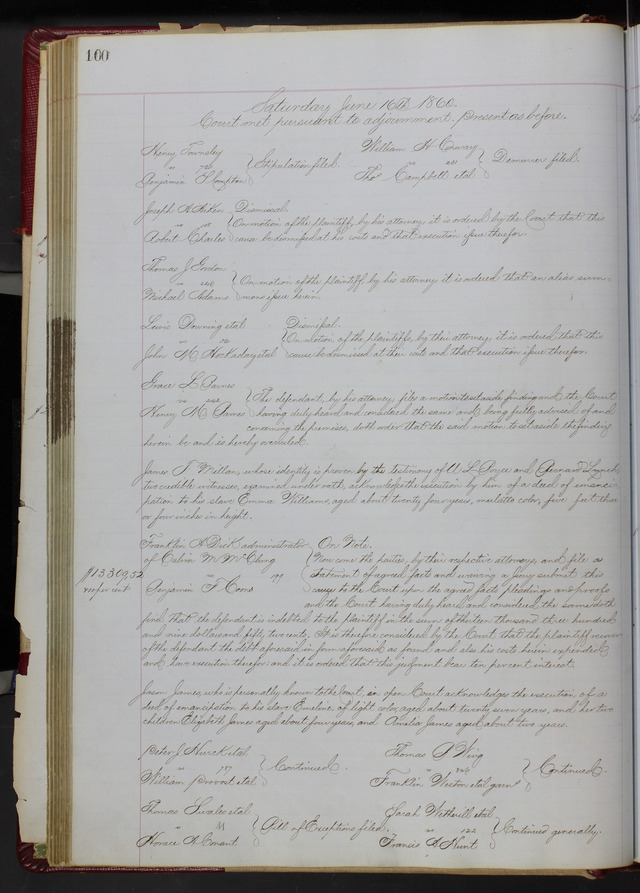 160
Saturday June 16th 1860.
Court met pursuant to adjournment, present as before.
Henry Townsley
vs
Benjamin Plompton
Stipulation filed.
William H Conway
vs
Thos Campbell etal
Demurrer filed.
Joseph A Aiken
vs
Robert Charles
Dismissal.
On motion of the plaintiff, by his attorney, it is ordered by the Court that this
cause be dismissed at his costs and that execution issue therefor.
Thomas J Gordon
vs
Michael Adams
On motion of the plaintiff by his attorney it is ordered that an alias sum-
mons issue herein.
Louis Downing etal
vs
John M Hockaday etal
Dismissal.
On motion of the plaintiffs, by their attorney, it is ordered that this
cause be dismissed at their costs and that execution issue therefor.
Grace L Barnes
vs
Henry M Barnes
The defendant, by his attorney, files a motion to set aside finding and the Court
having duly heard and considered the same and being fully advised of and
concerning the premises, doth order that the said motion to set aside the finding
herein be and is hereby overruled.
James S Millan, whose identity is proven by the testimony of A L Royce and Bernard Lynch,
two credible witnesses, examined under oath, acknowledges the execution by him of a deed of emanci-
pation to his slave Emma Williams, aged about twenty four years, mulatto color, five feet three
or four inches in height.
$1330 9.52
ten per cent
Franklin A Dick administrator
of Calvin M McClung
vs 199
Benjamin F Coons
On Note.
Now come the parties, by their respective attorneys, and file a
statement of agreed facts and waiving a jury submit this
cause to the Court upon the agreed facts, pleadings and proofs
and the Court having duly heard and considered the same doth
find that the defendant is indebted to the plaintiff in the sum of thirteen thousand three hundred
and nine dollars and fifty two cents. It is therefore considered by the Court that the plaintiff recover
of the defendant the debt aforesaid in form aforesaid as found and also his costs herein expended
and have execution therefor and it is ordered that this judgment bear ten per cent interest.
Jason James, who is personally known to the Court, in open Court acknowledges the execution of a
deed of emancipation to his slave Emeline, of light color, aged about twenty seven years, and her two
children Elizabeth James aged about four years, and Amelia James aged about two years.
Peter J Hurck etal
vs 197
William Provost etal
Continued.
Thomas P Wing
vs
Franklin Weston etal
Continued.
Thomas Swales etal
vs 11
Horace A Conant
Bill of Exceptions filed.
Sarah Witherill etal
vs 122
Francis A Hunt
Continued generally.